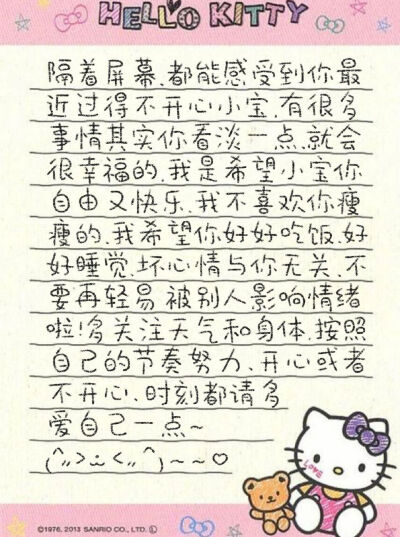 HELLO KITTY
隔着屏幕.都能感受到你最
近过得不开心小宝.有很多
事情其实你看淡一点.就会
很幸福的.我是希望小宝你
自由又快乐.我不喜欢你瘦
瘦的.我希望你好好吃饭.好
好睡觉.坏心情与你无关.不
要再轻易被别人影响情绪
啦!多关注天气和身体.按照
自己的节奏努力.开心或者
不开心.时刻都请多
爱自己一点~
(^„>⩊<„^)~~♡
LOVE
©1976, 2013 SANRIO CO., LTD. Ⓛ